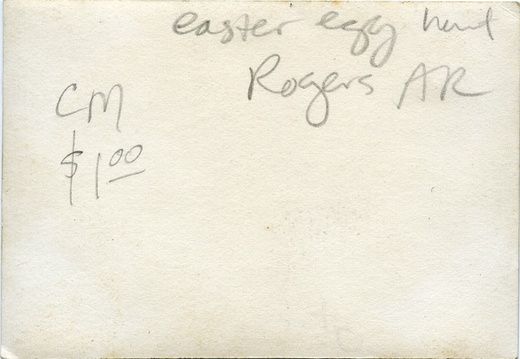 easter egg hunt
Rogers AR
CM
$1.00